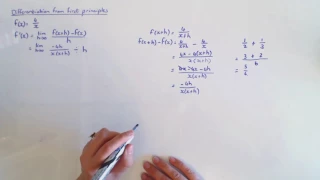 Differentiation from first principles
f(x) = 6/x
f'(x) = lim h→0 f(x+h) - f(x) / h
= lim h→0 -6h / x(x+h) ÷ h
f(x+h) = 6/x+h
f(x+h) - f(x) = 6/x+h - 6/x
= 6x - 6(x+h) / x(x+h)
= 6x - 6x - 6h / x(x+h)
= -6h / x(x+h)